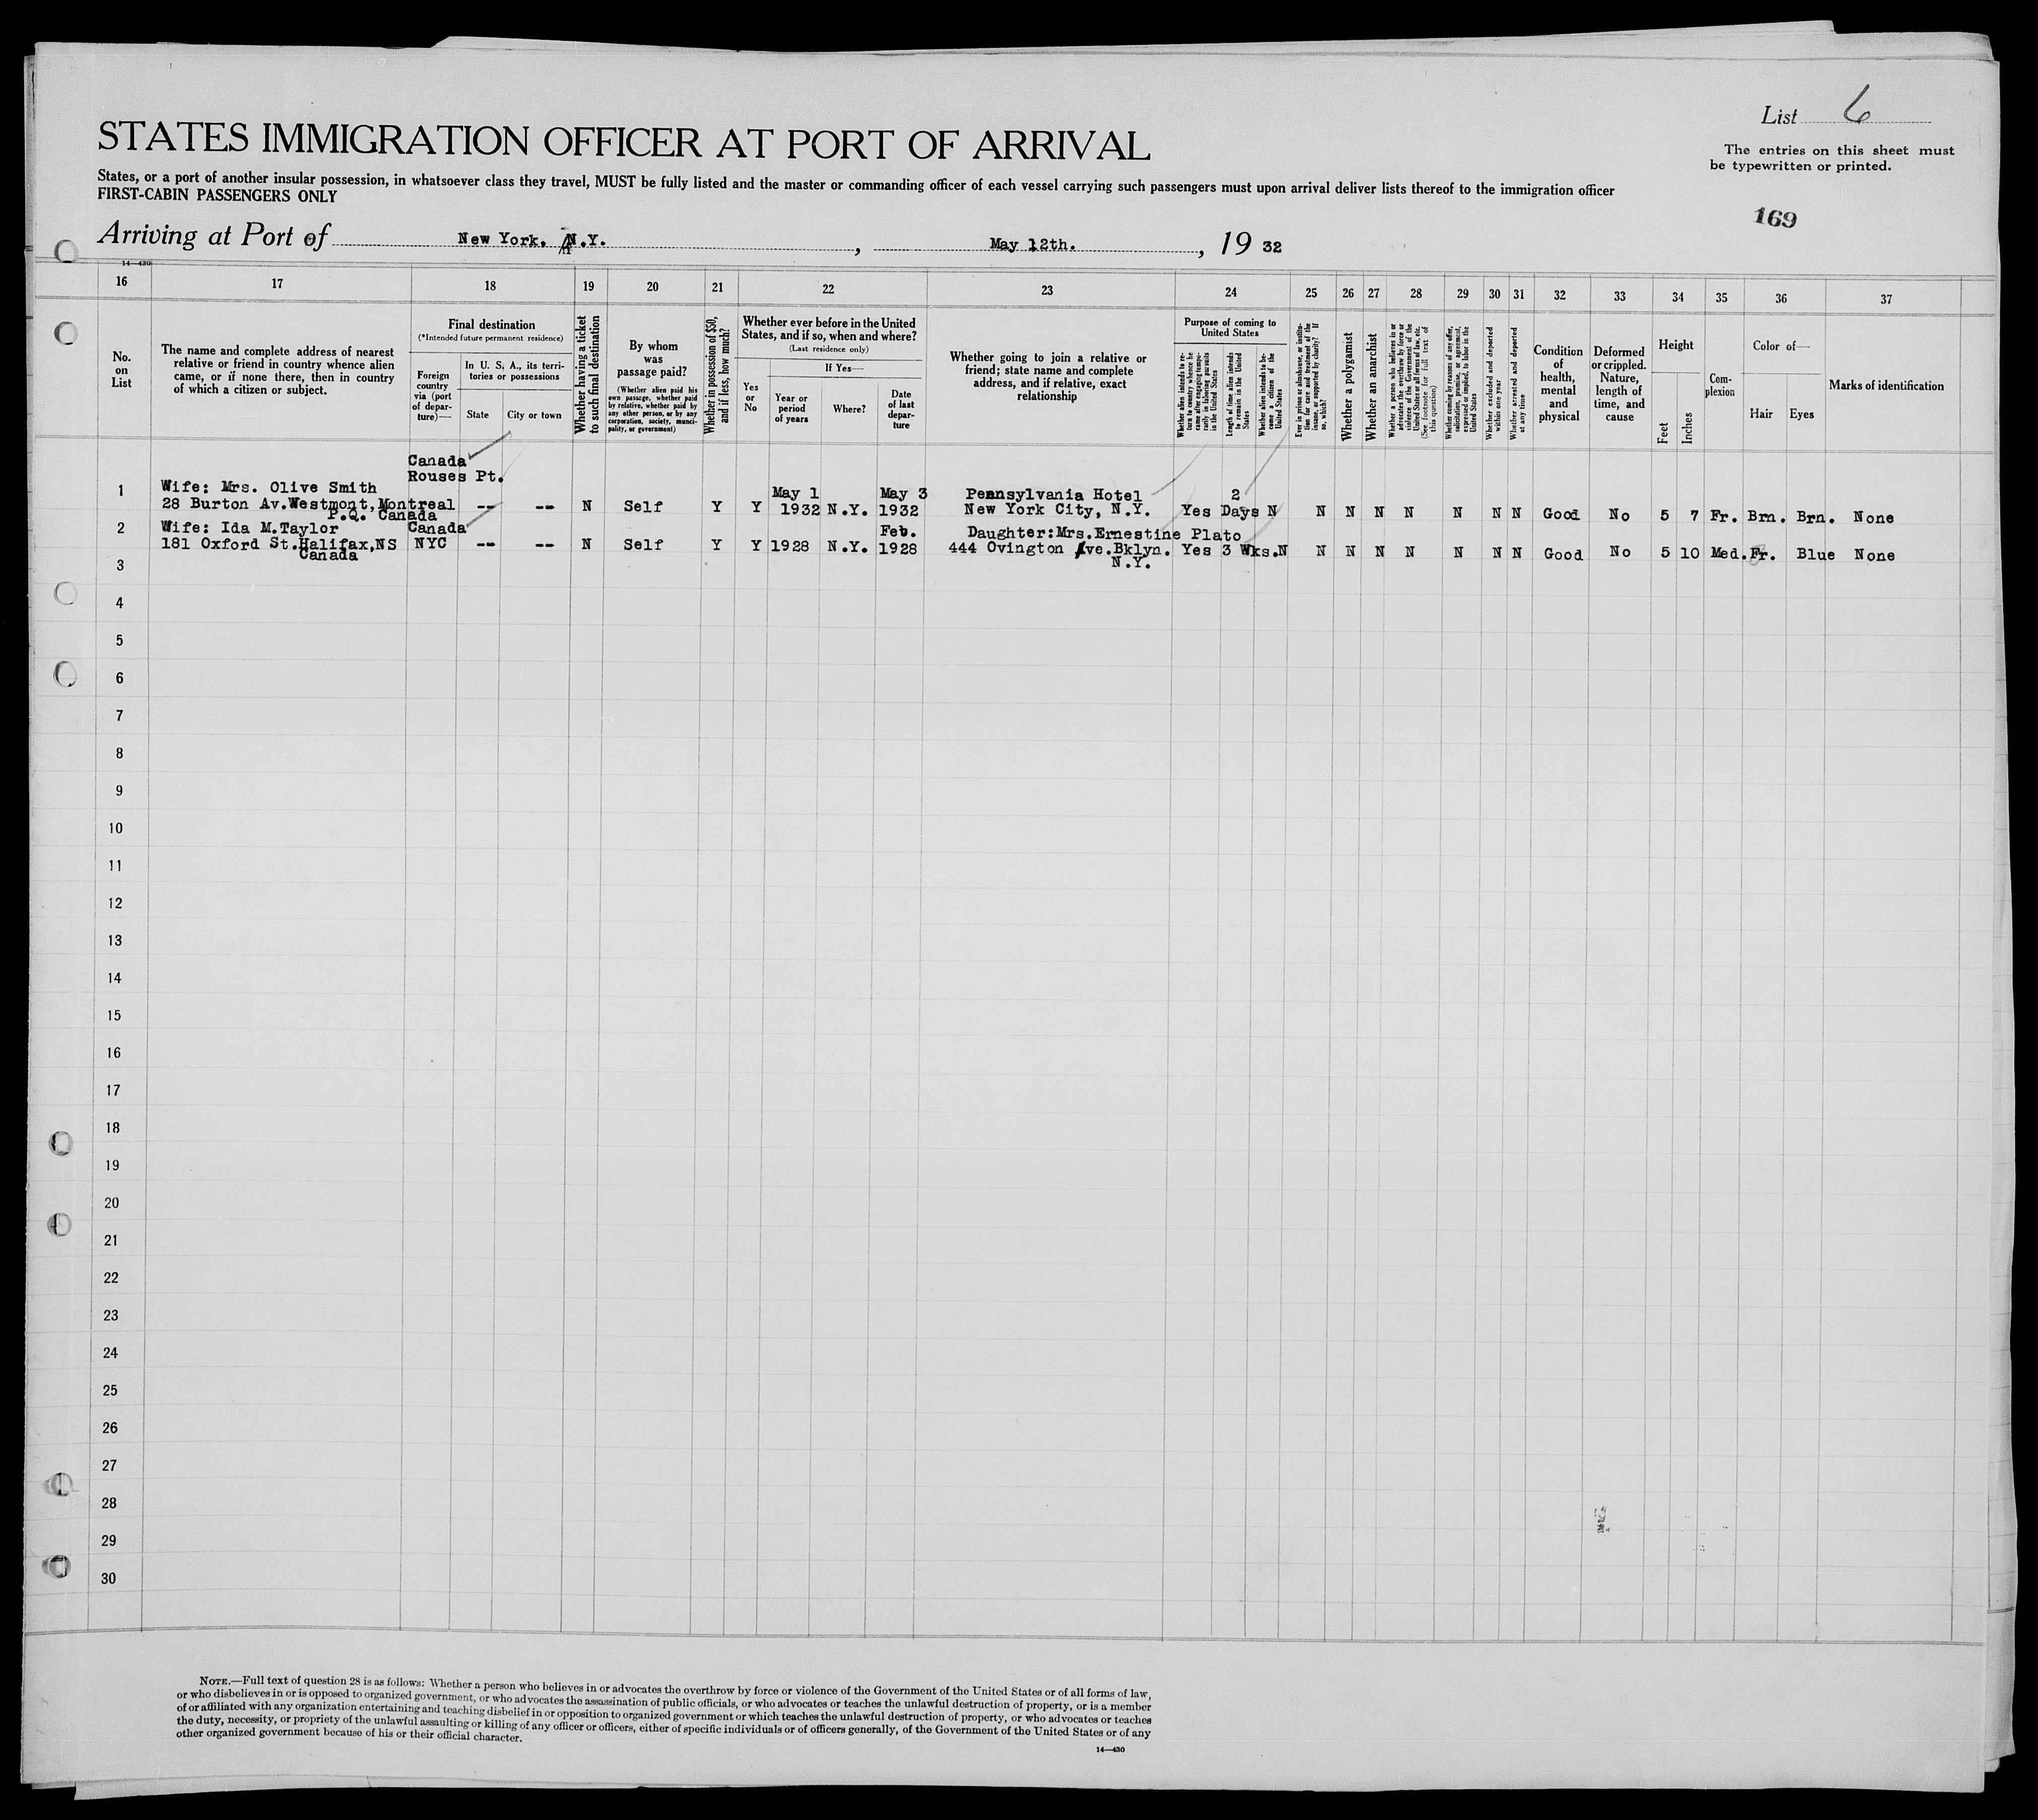 List 6
STATES IMMIGRATION OFFICER AT PORT OF ARRIVAL
The entries on this sheet must
be typewritten or printed.
States, or a port of another insular possession, in whatsoever class they travel, MUST be fully listed and the master or commanding officer of each vessel carrying such passengers must upon arrival deliver lists thereof to the immigration officer
FIRST-CABIN PASSENGERS ONLY
169
Arriving at Port of New York, N.Y. , May 12th. , 19 32
14—430
16 17 18 19 20 21 22 23 24 25 26 27 28 29 30 31 32 33 34 35 36 37
No.
on
List
The name and complete address of nearest
relative or friend in country whence alien
came, or if none there, then in country
of which a citizen or subject.
Final destination
(*Intended future permanent residence)
Foreign
country
via (port
of depar-
ture)—
In U. S. A., its terri-
tories or possessions
State City or town
Whether having a ticket
to such final destination
By whom
was
passage paid?
(Whether alien paid his
own passage, whether paid
by relative, whether paid by
any other person, or by any
corporation, society, munici-
pality, or government)
Whether in possession of $50,
and if less, how much?
Whether ever before in the United
States, and if so, when and where?
(Last residence only)
Yes
or
No
If Yes—
Year or
period
of years
Where?
Date
of last
depar-
ture
Whether going to join a relative or
friend; state name and complete
address, and if relative, exact
relationship
Purpose of coming to
United States
Whether alien intends to re-
turn to country whence he
came after engaging tempo-
rarily in laboring pursuits
in the United States
Length of time alien intends
to remain in the United
States
Whether alien intends to be-
come a citizen of the
United States
Ever in prison or almshouse, or institu-
tion for care and treatment of the
insane, or supported by charity? If
so, which?
Whether a polygamist
Whether an anarchist
Whether a person who believes in or
advocates the overthrow by force or
violence of the Government of the
United States or all forms of law, etc.
(See footnote for full text of
this question)
Whether coming by reasons of any offer,
solicitation, promise, or agreement,
expressed or implied, to labor in the
United States
Whether excluded and deported
within one year
Whether arrested and deported
at any time
Condition
of
health,
mental
and
physical
Deformed
or crippled.
Nature,
length of
time, and
cause
Height
Feet
Inches
Com-
plexion
Color of—
Hair Eyes
Marks of identification
Canada
Rouses Pt.
1 Wife: Mrs. Olive Smith May 1 May 3 Pennsylvania Hotel 2
28 Burton Av.Westmont,Montreal -- -- N Self Y Y 1932 N.Y. 1932 New York City, N.Y. Yes Days N N N N N N N N Good No 5 7 Fr. Brn. Brn. None
P.Q. Canada
2 Wife: Ida M.Taylor Canada Feb. Daughter:Mrs.Ernestine Plato
181 Oxford St.Halifax,NS NYC -- -- N Self Y Y 1928 N.Y. 1928 444 Ovington Ave.Bklyn. Yes 3 Wks.N N N N N N N N Good No 5 10 Med.Fr. Blue None
Canada N.Y.
3
4
5
6
7
8
9
10
11
12
13
14
15
16
17
18
19
20
21
22
23
24
25
26
27
28
29
30
NOTE.—Full text of question 28 is as follows: Whether a person who believes in or advocates the overthrow by force or violence of the Government of the United States or of all forms of law,
or who disbelieves in or is opposed to organized government, or who advocates the assassination of public officials, or who advocates or teaches the unlawful destruction of property, or is a member
of or affiliated with any organization entertaining and teaching disbelief in or opposition to organized government or which teaches the unlawful destruction of property, or who advocates or teaches
the duty, necessity, or propriety of the unlawful assaulting or killing of any officer or officers, either of specific individuals or of officers generally, of the Government of the United States or of any
other organized government because of his or their official character.
14—430